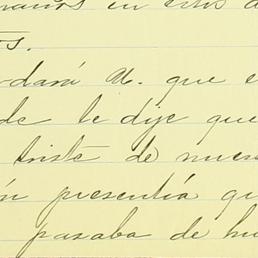 en estos
os.
dará U. que e
de le dije que
triste de nues
ón presentía qu
pasaba de hu